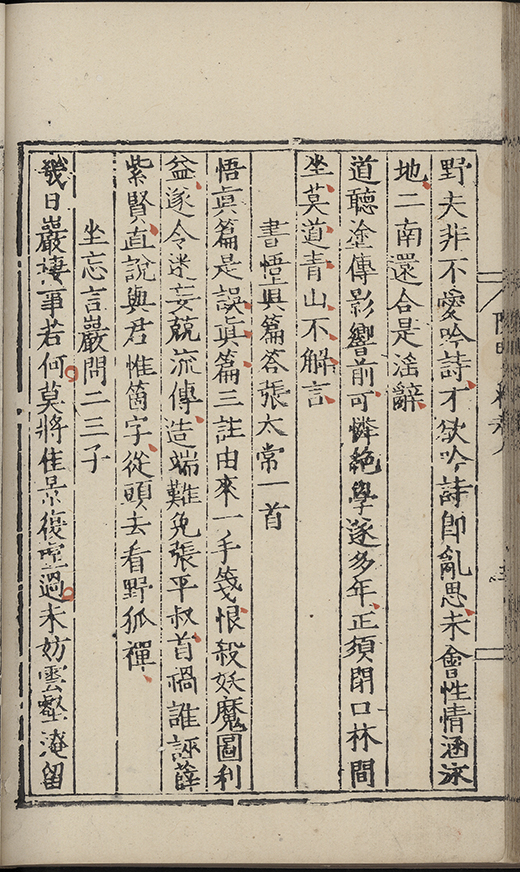 野夫非不愛吟詩才欲吟詩即亂思未會性情涵泳
地二南還合是滛辭
道聽塗傳影響前可憐絶學遂多年正須閉口林間
坐莫道青山不解言
書悟真篇答張太常一首
悟真篇是誤真篇三註由來一手箋恨殺妖魔圖利
益遂令迷妄競流傳造端難免張平叔首禍誰誣薛
紫賢直說與君惟箇字從頭去看野狐禪
坐忘言巖問二三子
幾日巖棲事若何莫將佳景復虛過未妨雲壑淹留